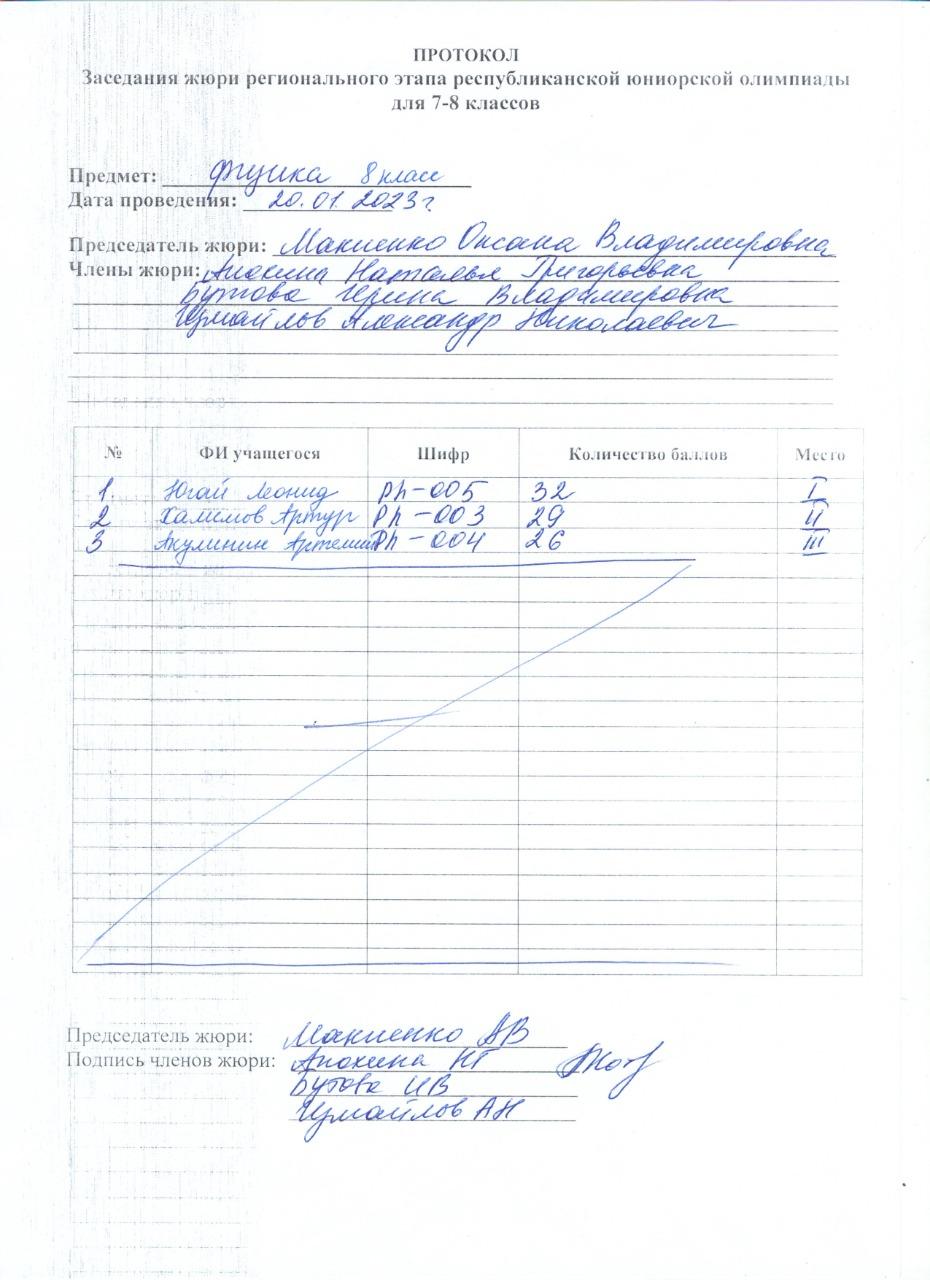 ПРОТОКОЛ
Заседания жюри регионального этапа республиканской юниорской олимпиады
для 7-8 классов
Предмет: Физика 8 класс
Дата проведения: 20.01.2023 г.
Председатель жюри: Макиенко Оксана Владимировна
Члены жюри: Анохина Наталья Григорьевна
Бутова Ирина Владимировна
Измайлов Александр Николаевич
№ ФИ учащегося Шифр Количество баллов Место
1. Югай Леонид Ph-005 32 I
2 Халимов Артур Ph-003 29 II
3 Акулинин Артемий Ph-004 26 III
Председатель жюри: Макиенко ОВ
Подпись членов жюри: Анохина НГ
Бутова ИВ
Измайлов АН